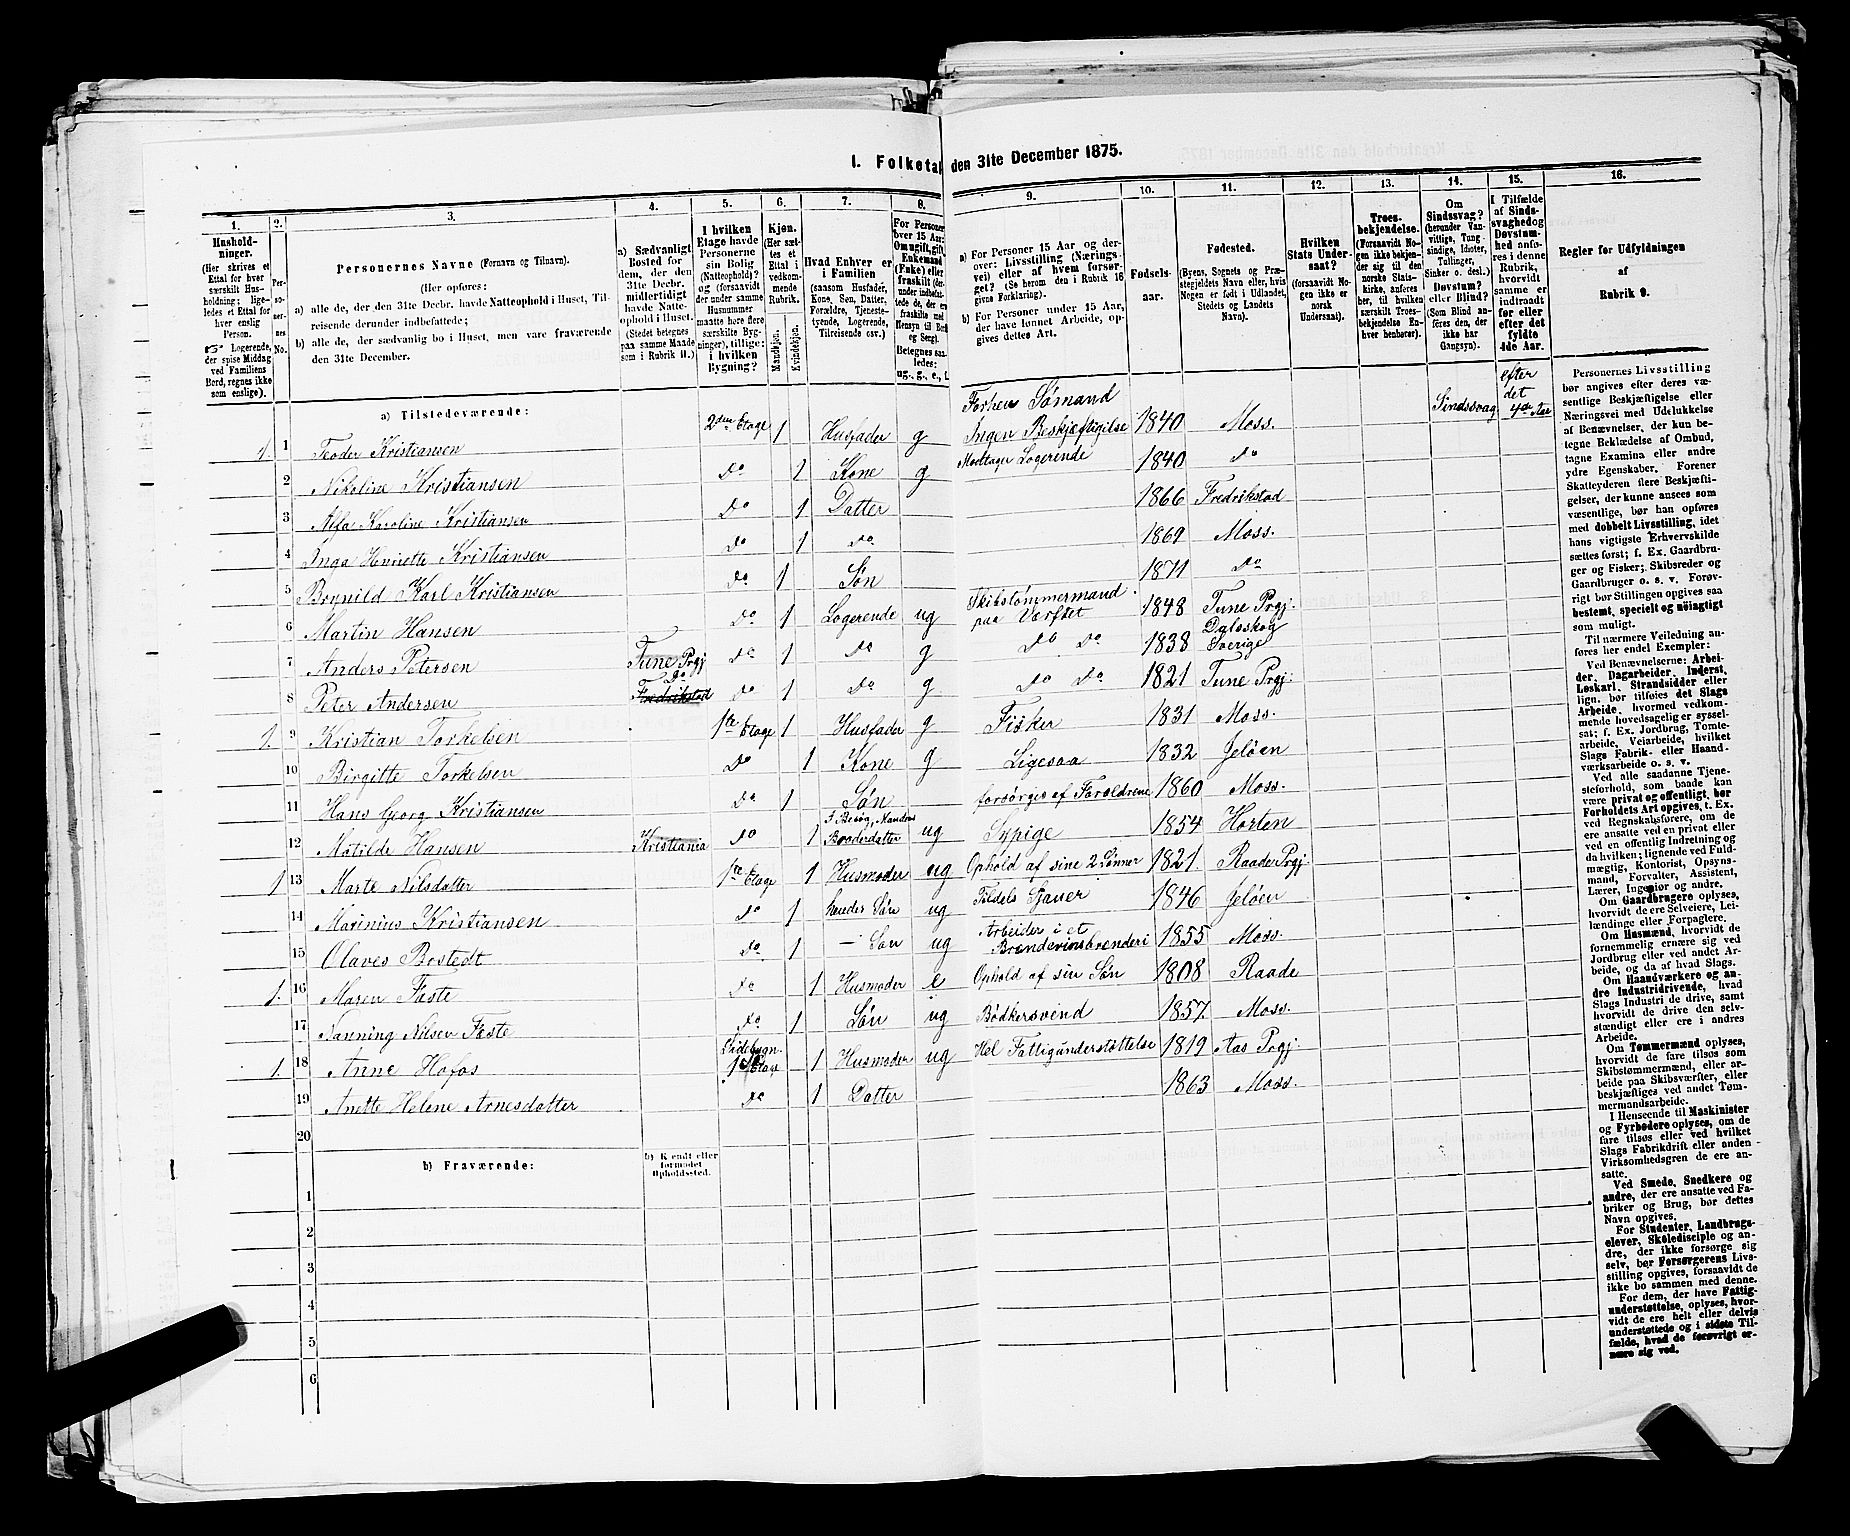 I. Folketal den 31te December 1875.
1. 2. 3. 4. 5. 6. 7. 8. 9. 10. 11. 12. 13. 14. 15. 16.
Hushold-
ninger.
(Her skrives et
Ettal for hver
særskilt Hus-
holdning; lige-
ledes et Ettal for
hver enslig
Person.
Logerende,
der spise Middag
ved Familiens
Bord, regnes ikke
som enslige).
Per-
so-
ner-
nes
No.
Personernes Navne (Fornavn og Tilnavn).
(Her opføres:
a) alle de, der den 31te Decbr. havde Natteophold i Huset, Til-
reisende derunder indbefattede;
b) alle de, der sædvanlig bo i Huset, men vare fraværende
den 31te December.
a) Sædvanligt
Bosted for
dem, der den
31te Decbr.
midlertidigt
havde Natte-
ophold i Huset.
(Stedet betegnes
paa samme Maade
som i Rubrik 11.)
I hvilken
Etage havde
Personerne
sin Bolig
(Natteophold)?
og (forsaavidt
der under samme
Husnummer
maatte høre flere
særskilte Byg-
ninger), tillige:
i hvilken
Bygning?
Kjøn.
(Her sæt-
tes et
Ettal i
vedkom-
mende
Rubrik.)
Mandkjøn.
Kvindekjøn.
Hvad Enhver er
i Familien
(saasom Husfader,
Kone, Søn, Datter,
Forældre, Tjeneste-
tyende, Logerende,
Tilreisende osv.)
For Personer
over 15 Aar:
Om ugift, gift,
Enkemand
(Enke) eller
fraskilt
Betegnes saa-
ledes:
ug., g., e., f.
a) For Personer 15 Aar og der-
over: Livsstilling (Nærings-
vei) eller af hvem forsør-
get? (Se herom den i Rubrik 16
givne Forklaring).
b) For Personer under 15 Aar,
der have lønnet Arbeide, op-
gives dettes Art.
Fødsels-
aar.
Fødested.
(Byens, Sognets og Præ-
stegjeldets Navn eller, hvis
Nogen er født i Udlandet,
Stedets og Landets
Navn).
Hvilken
Stats Under-
saat?
(forsaavidt No-
gen ikke er
norsk
Undersaat).
Troes-
bekjendelse.
(Forsaavidt No-
gen ikke bekjen-
der sig til den
norske Stats-
kirke, anføres
her, til hvilken
særskilt Troes-
bekjendelse En-
hver henhører).
Om
Sindssvag?
(herunder Van-
vittige, Tung-
sindige, Idioter,
Tullinger,
Sinker o. desl.)
Døvstum?
eller Blind?
(Som Blind an-
føres den, der
ikke har
Gangsyn).
I Tilfælde
af Sinds-
svaghed og
Døvstum-
hed anfø-
res i denne
Rubrik,
hvorvidt
samme er
indtraadt
før eller
efter det
fyldte
4de Aar.
Regler for Udfyldningen
af
Rubrik 9.
a) Tilstedeværende:
1. 1 Teodor Kristiansen 2den Etage 1 Husfader g Forhen Sømand Ingen Beskjæftigelse 1840 Moss. Sindssvag efter det 4de Aar
2 Nikoline Kristiansen Do 1 Kone g Modtager Logerende 1840 Do
3 Alfa Karoline Kristiansen Do 1 Datter 1866 Fredrikstad
4 Inga Henriette Kristiansen Do 1 Do 1869 Moss.
5 Brynild Karl Kristiansen Do 1 Søn 1871 Do
6 Martin Hansen Do 1 Logerende ug Skibstømmermand paa Værftet 1848 Tune Prgj.
7 Anders Petersen Tune Prgj Do 1 Do g Do Do 1838 Dalsskog Sverige
8 Peter Andersen Do Fredrikstad Do 1 Do g Do Do 1821 Tune Prgj.
1. 9 Kristian Torkelsen 1te Etage 1 Husfader g Fisker 1831 Moss.
10 Birgitte Torkelsen Do 1 Kone g Ligesaa 1832 Jeløen
11 Hans Georg Kristiansen Do 1 Søn forsørges af Forældrene 1860 Moss.
12 Matilde Hansen Kristiania Do 1 I Besøg, Mandens Broderdatter ug Sypige 1854 Horten
1 13 Marte Nilsdatter 1te Etage 1 Husmoder ug Ophold af sine 2 Sønner 1821. Raade Prgj
14 Marinius Kristiansen Do 1 hendes Søn ug Tildels Sjauer 1846 Jeløen
15 Olaves Bostedt Do 1 – Søn ug Arbeider i et Brændevinsbrænderi 1855 Moss.
1. 16 Maren Faste Do 1 Husmoder e Ophold af sin Søn 1808 Raade
17 Nanning Nilsen Faste Do 1 Søn ug Bødkersvend 1857. Moss.
1. 18 Anne Hofos Sidebygn. 1 Etage 1 Husmoder ug Hel Fattigunderstøttelse 1819 Aas Prgj.
19 Anette Helene Arnesdatter Do 1 Datter 1863 Moss.
20
b) Fraværende:
b) Kendt eller
formodet
Opholdssted.
1
2
3
4
5
6
Personernes Livsstilling
bør angives efter deres væ-
sentlige Beskjæftigelse eller
Næringsvei med Udelukkelse
af Benævnelser, der kun be-
tegne Beklædelse af Ombud,
tagne Examina eller andre
ydre Egenskaber. Forener
Skatteyderen flere Beskjæfti-
gelser, der kunne ansees som
væsentlige, bør han opføres
med dobbelt Livsstilling, idet
hans vigtigste Erhvervskilde
sættes først; f. Ex. Gaardbru-
ger og Fisker; Skibsreder og
Gaardbruger o. s. v. Forøv-
rigt bør Stillingen opgives saa
bestemt, specielt og nøiagtigt
som muligt.
Til nærmere Veiledning an-
føres her endel Exempler:
Ved Benævnelserne: Arbei-
der, Dagarbeider, Inderst,
Løskarl, Strandsidder eller
lign. bør tilføies det Slags
Arbeide, hvormed vedkom-
mende hovedsagelig er syssel-
sat; f. Ex. Jordbrug, Tomte-
arbeide, Veiarbeide, hvilket
Slags Fabrik- eller Haand-
værksarbeide o. s. v.
Ved alle saadanne Tjene-
steforhold, som baade kan
være privat og offentligt, bør
Forholdets Art opgives, t. Ex.
ved Regnskabsførere, om de
ere ansatte ved en privat eller
ved en offentlig Indretning og
da hvilken; lignende ved Fuld-
mægtig, Kontorist, Opsyns-
mand, Forvalter, Assistent,
Lærer, Ingeniør og andre.
Om Gaardbrugere oplyses,
hvorvidt de ere Selveiere, Lei-
lændinge eller Forpagtere.
Om Husmænd, hvorvidt de
fornemmelig ernære sig ved
Jordbrug eller ved andet Ar-
beide, og da af hvad Slags.
Om Haandværkere og an-
dre Industridrivende, hvad
Slags Industri de drive, samt
hvorvidt de drive den selv-
stændigt eller ere i andres
Arbeide.
Om Tømmermænd oplyses,
hvorvidt de fare tilsøs som
Skibstømmermænd, eller ar-
beide paa Skibsværfter, eller
beskjæftiges ved andet Tøm-
mermandsarbeide.
I Henseende til Maskinister
og Fyrbødere oplyses, om de
fare tilsøs eller ved hvilket
Slags Fabrikdrift eller anden
Virksomhedsgren de ere an-
satte.
Ved Smede, Snedkere og
andre, der ere ansatte ved Fa-
briker og Brug, bør dettes
Navn opgives.
For Studenter, Landbrugs-
elever, Skoledisciple og an-
dre, der ikke forsørge sig
selv, bør Forsørgerens Livs-
stilling opgives, forsaavidt de
ikke bo sammen med denne.
For dem, der have Fattig-
understøttelse, oplyses, hvor-
vidt de ere helt eller delvis
understøttede og i sidste Til-
fælde, hvad de forøvrigt er-
nære sig ved.